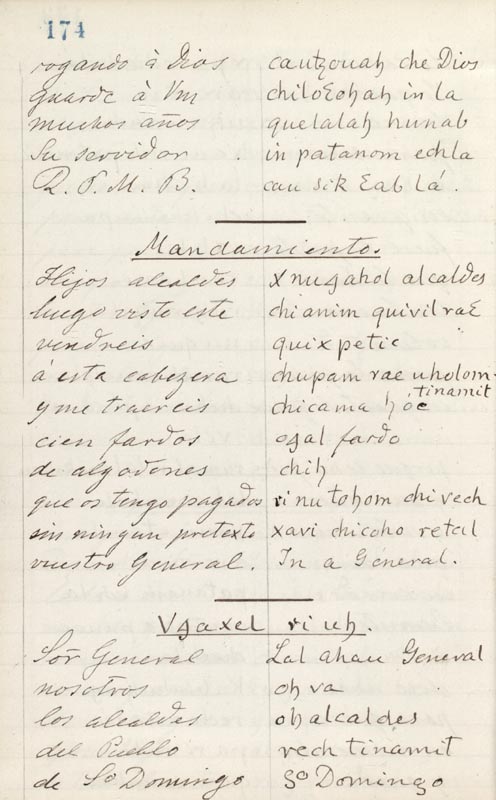 174
rogando à Dios cautzouah che Dios
guarde à Vm chiloɛohah in la
muchos años quelalah hunab
Su servidor in patanom echla
Q. S. M. B. cau sik ɛab lá.
Mandamiento.
Hijos alcaldes xnugahol alcaldes
luego visto este chi anim quivil raɛ
vendreis quix petic
á esta cabezera chupam rae uholom-tinamit
y me traereis chicama
cien fardos ogal fardo
de algodones chih
que os tengo pagados ri nutohom chivech
sin ningun pretexto xavi chicoho retal
vuestro General. In a General.
Vgaxel ri uh.
Sõr General Lal ahau General
nosotros oh va
los alcaldes oh alcaldes
del Pueblo rech tinamit
de Sº Domingo Sº Domingo